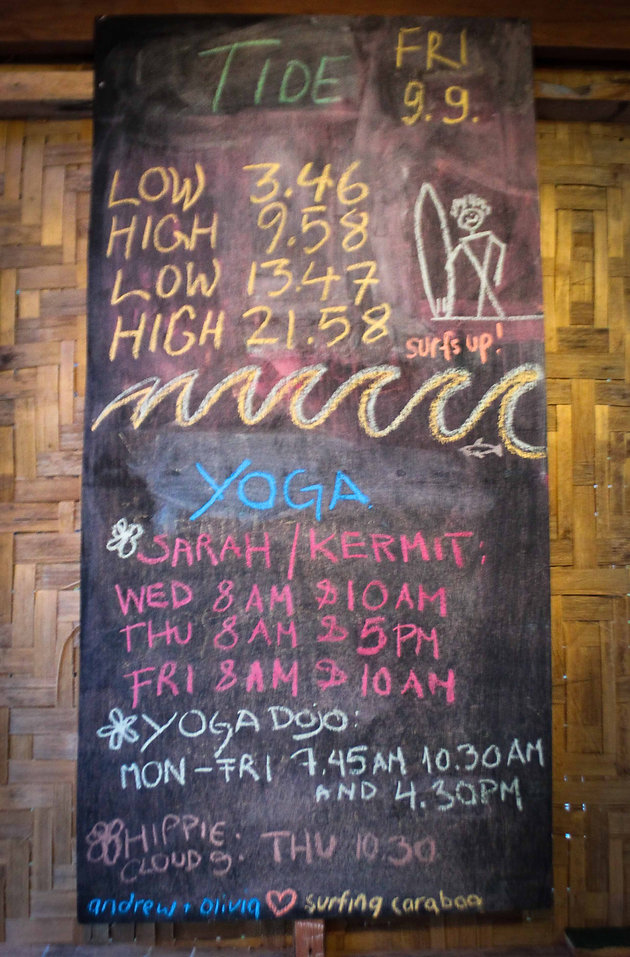 TIDE
FRI
9.9.
LOW 3.46
HIGH 9.58
LOW 13.47
HIGH 21.58
surfs up!
YOGA
SARAH / KERMIT:
WED 8 AM & 10 AM
THU 8 AM & 5 PM
FRI 8 AM & 10 AM
YOGA DOJO:
MON - FRI 7.45 AM 10.30 AM
AND 4.30 PM
HIPPIE:
CLOUD 9 THU 10.30
andrew + olivia ♡ surfing carabao